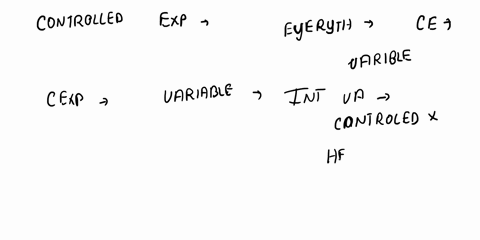 CONTROLLED EXP → EYERYTH → CE →
VARIBLE
CEXP → VARIABLE → INT VA →
CONTROLED X
HF